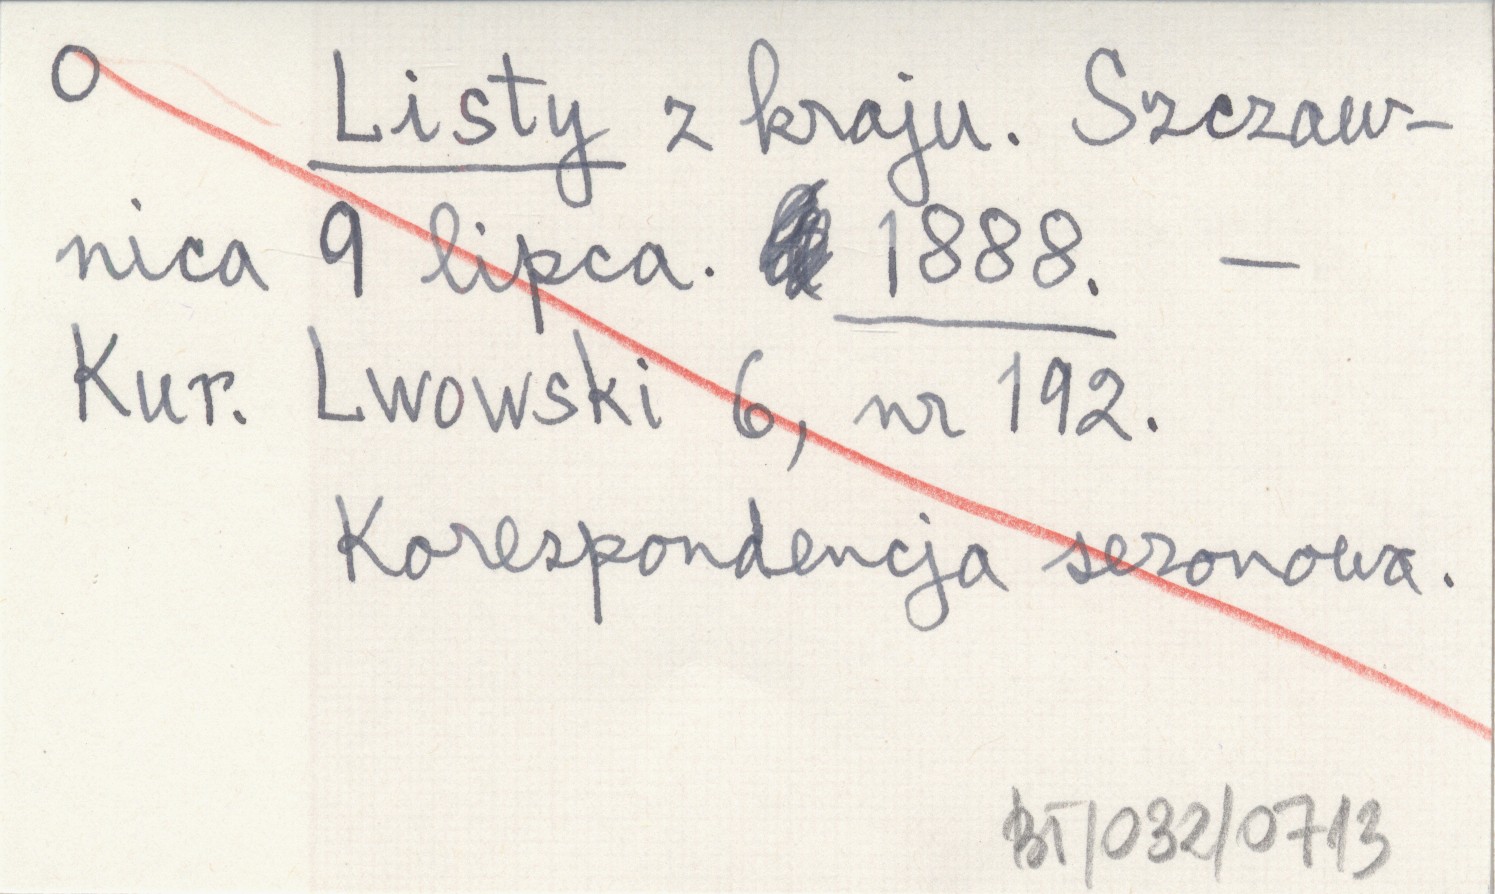 O Listy z kraju. Szczaw-
nica 9 lipca. 1888. —
Kur. Lwowski 6, nr 192.
Korespondencja sezonowa.
BT/032/0713